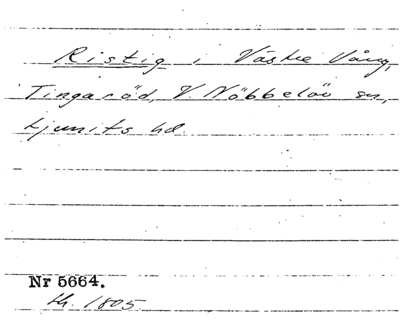 Ristig i Västre Vång,
Tingaröd, V. Nöbbelöv sn,
Ljunits hd.
Nr 5664.
th. 1805